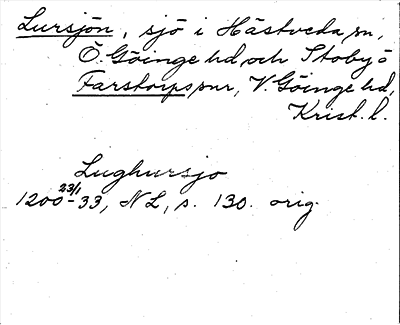 Lursjön, sjö i Hästveda sn,
Ö. Göinge hd, och Stoby ö
Farstorps snr, V. Göinge hd,
Krist. l.
Lughursjo
23/1
1200-33, N L, s. 130. orig.